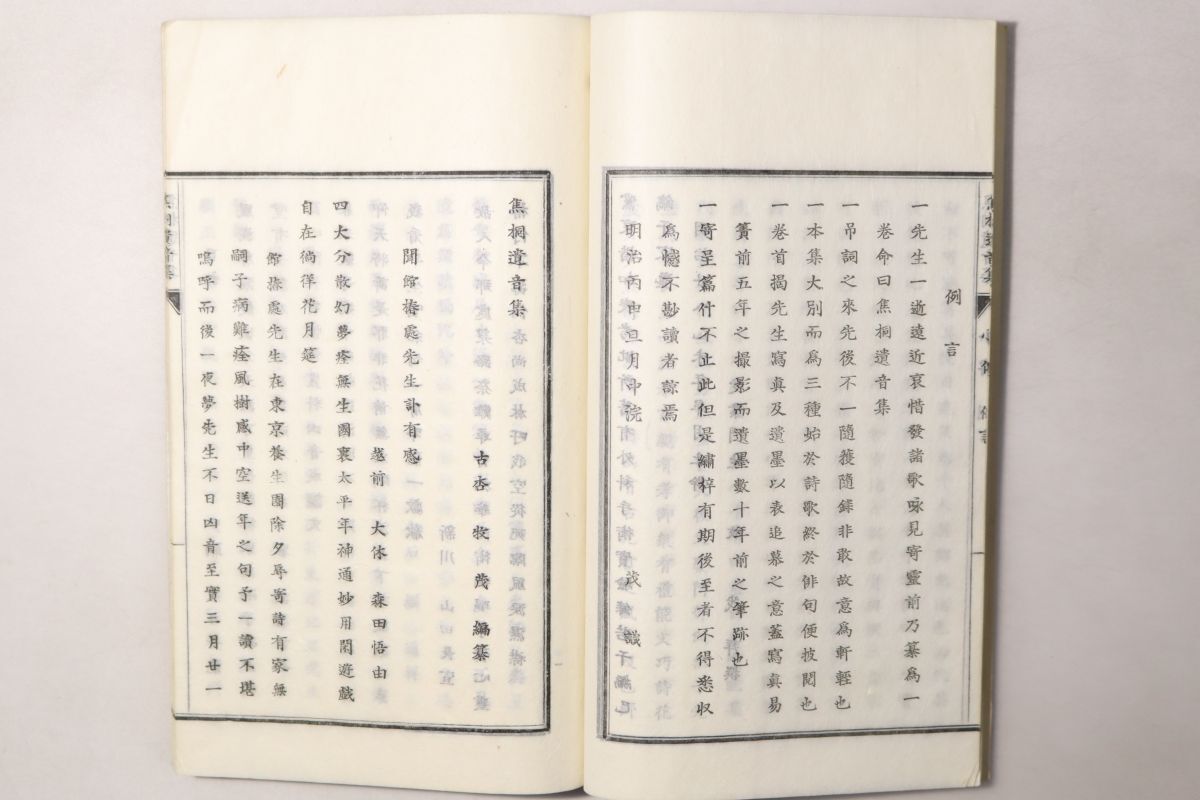 例言
一先生一逝遠近哀惜發諸歌咏見寄靈前乃纂爲一
卷命曰焦桐遺音集
一吊詞之來先後不一隨獲隨錄非敢故意爲軒輊也
一本集大別而爲三種始於詩歌終於俳句便披閱也
一卷首揭先生寫眞及遺墨以表追慕之意蓋寫眞易
簀前五年之撮影而遺墨數十年前之筆跡也
一寄呈篇什不止此但是繡梓有期後至者不得悉収
爲憾不尠讀者諒焉
明治丙申三月中浣 茂識
焦桐遺音集
古杏 牧 茂 編纂
聞館椿處先生訃有感
越前 大休 森田悟由
四大分散幻夢痊無生國裏太平年神通妙用閑遊戲
自在徜徉花月筵
館椿處先生在東京養生園除夕辱寄詩有家無
嗣子病難痊風樹感中空送年之句予一讀不堪
嗚呼而後一夜夢先生不日凶音至實三月廿一